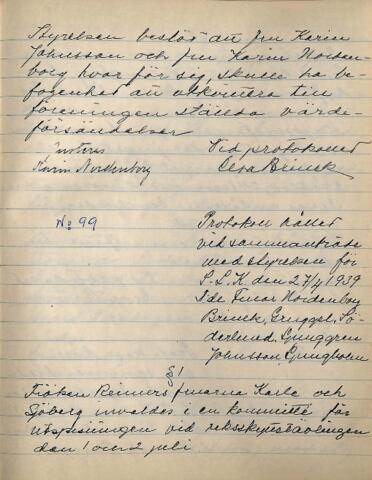 Styrelsen beslöt att fru Karin
Johnsson och fru Karin Norden-
borg hvar för sig, skulle ha be-
fogenhet att utkvittera till
föreningen ställda värde-
försändelser
Justeras
Vid protokollet
Karin Nordenborg
Elsa Brinck
No 99
Protokoll hållet
vid sammanträde
med styrelsen för
S.L.K. den 27/4 1939
Fruar Nordenborg
Brinck, Söderlund, Ljunggren
Johnsson, Ljungholm
§1
Fröken Reiners fruarna Karle och
Sjöberg invaldes i en kommitté för
utspisningen vid riksskyttetävlingen
den 1 och 2 juli